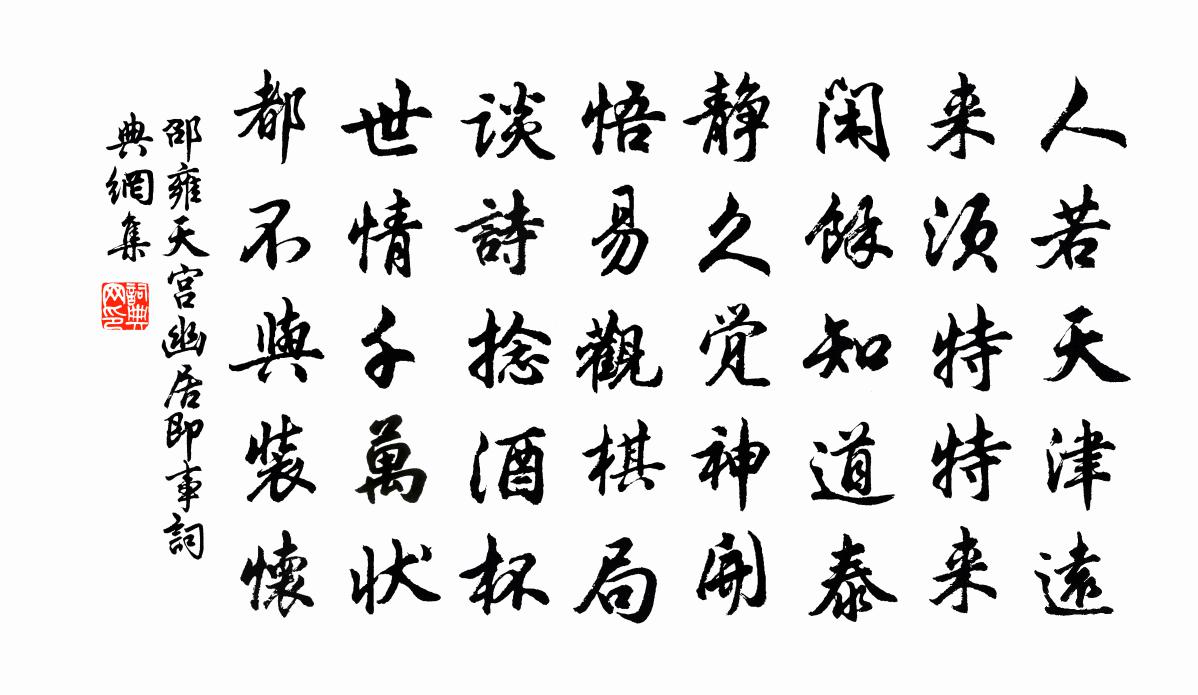 人若天津遠
来須特特来
閑餘知道泰
静久覚神開
悟易觀棋局
談詩捻酒杯
世情千萬状
都不與裝懷
邵雍天宮幽居即事詞
典網集
詞典網印